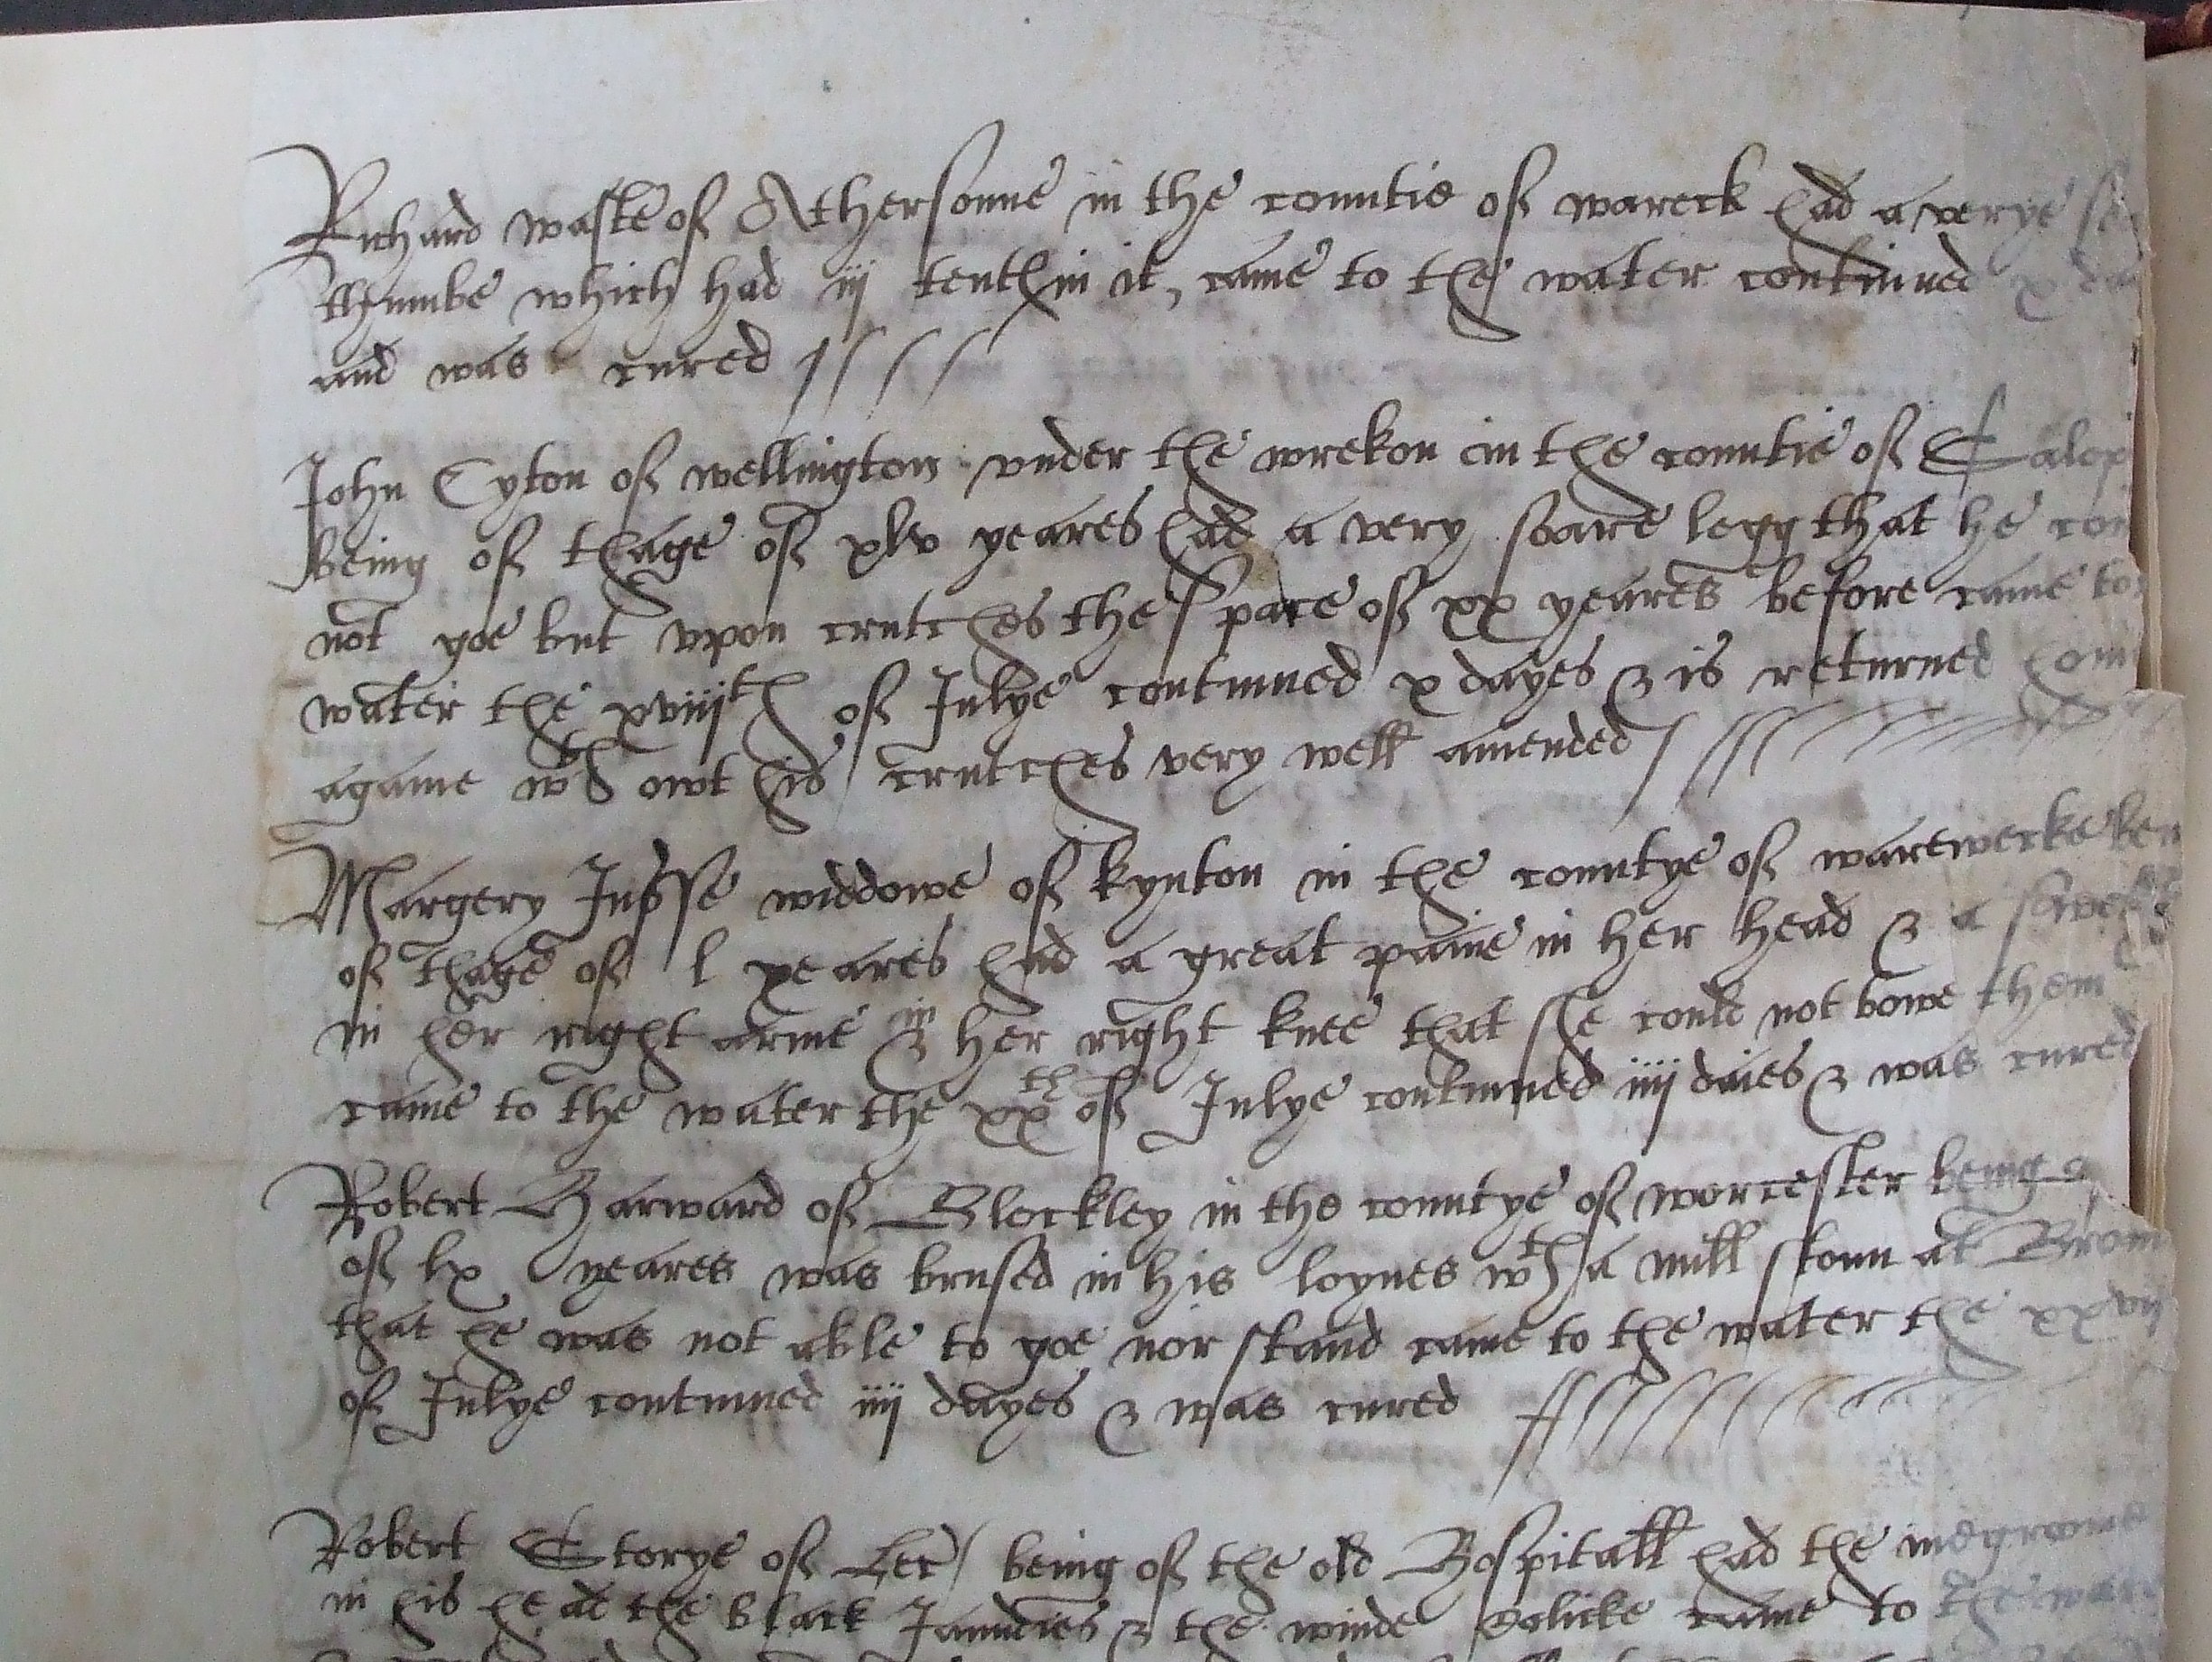 Richard waste of Athersonne in the countie of wareck had a verye
thumbe which had iij tenth in it, came to the water continued x
and was cured
John Cyton of wellington vnder the wrekon in the countie of Salop
being of thage of xlv yeares had a very soare legg that he
not goe but vpon crutches the space of xx yeares before came to
water the xviijth of Julye continued x dayes & is returned
againe wth owt his crutches very well amended
Margery widdowe of kynton in the countye of warewecke
of thage of l yeares had a great paine in her head & a
in her right arme & in her right knee that she could not bowe them
came to the water the xxth of Julye continued iiij daies & was cured
Robert Harward of Blockley in the countye of worcester being
of lx yeares was brused in his loynes wth a mill stonn at
that he was not able to goe nor stand came to the water the
of Julye continued iiij dayes & was cured
Robert Storye of being of the old Hospitall had the megrame
in his head the black Jaundies & the winde Collicke came to the